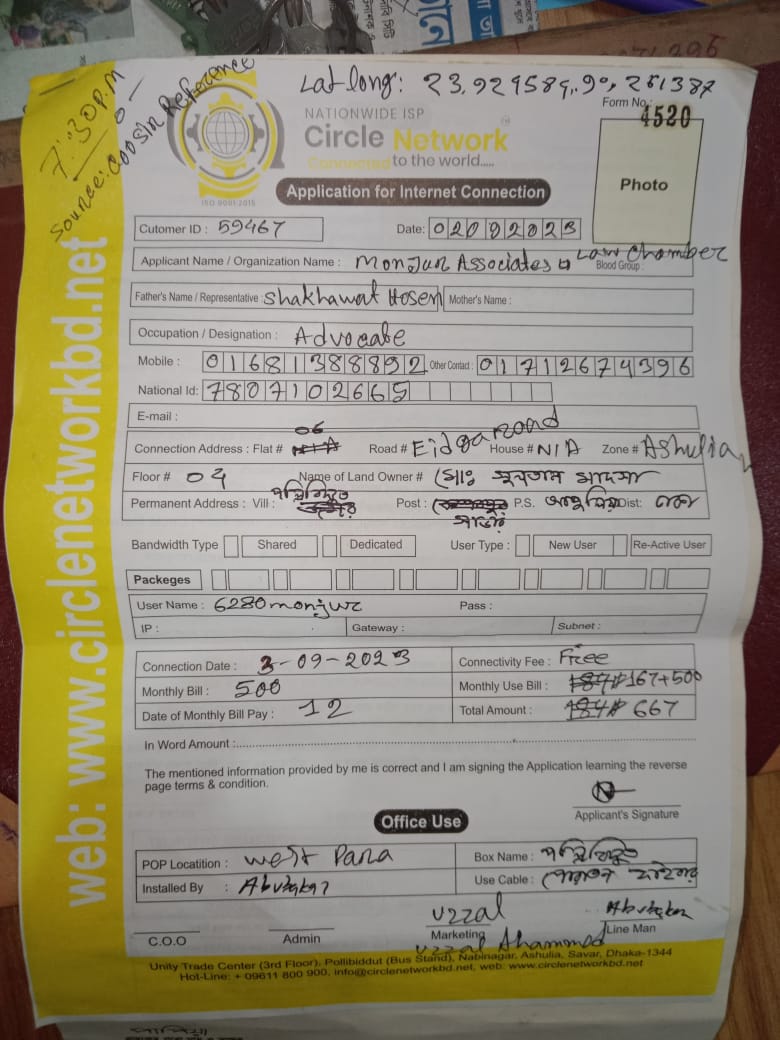 Lat long: 23.929589, 90.261387
7:30 P.M
Source: Coosin Reference
NATIONWIDE ISP
Circle Network
Connected to the world.....
ISO 9001:2015
Form No.: 4520
Photo
Application for Internet Connection
Cutomer ID : 59467 Date: 02092023
Applicant Name / Organization Name : Monjur Associates Law Chamber
Blood Group :
Father's Name / Representative Shakhawat Hosen Mother's Name :
Occupation / Designation : Advocate
Mobile : 01681388892 Other Contact : 01712674396
National Id: 7807102665
E-mail :
06
Connection Address : Flat # Road # Eidga road House # N/A Zone # Ashulia
Floor # 04 Name of Land Owner # মোঃ সুলতান
Permanent Address : Vill : পল্লিবিদ্যুত Post : P.S. আশুলিয়া Dist: ঢাকা
সাভার
Bandwidth Type Shared Dedicated User Type : New User Re-Active User
Packeges
User Name : 6280monjur Pass :
IP : Gateway : Subnet :
Connection Date : 3-09-2023 Connectivity Fee : Free
Monthly Bill : 500 Monthly Use Bill : 167+500
Date of Monthly Bill Pay : 12 Total Amount : 667
In Word Amount :
The mentioned information provided by me is correct and I am signing the Application learning the reverse
page terms & condition.
Applicant's Signature
Office Use
POP Locatition : West Para Box Name : পল্লিবিদ্যুত
Installed By : Abubakar Use Cable :
uzzal Abubakar
C.O.O Admin Marketing Line Man
uzzal Ahammod
Unity Trade Center (3rd Floor), Pollibiddut (Bus Stand), Nabinagar, Ashulia, Savar, Dhaka-1344
Hot-Line: + 09611 800 900, info@circlenetworkbd.net, web: www.circlenetworkbd.net
web: www.circlenetworkbd.net